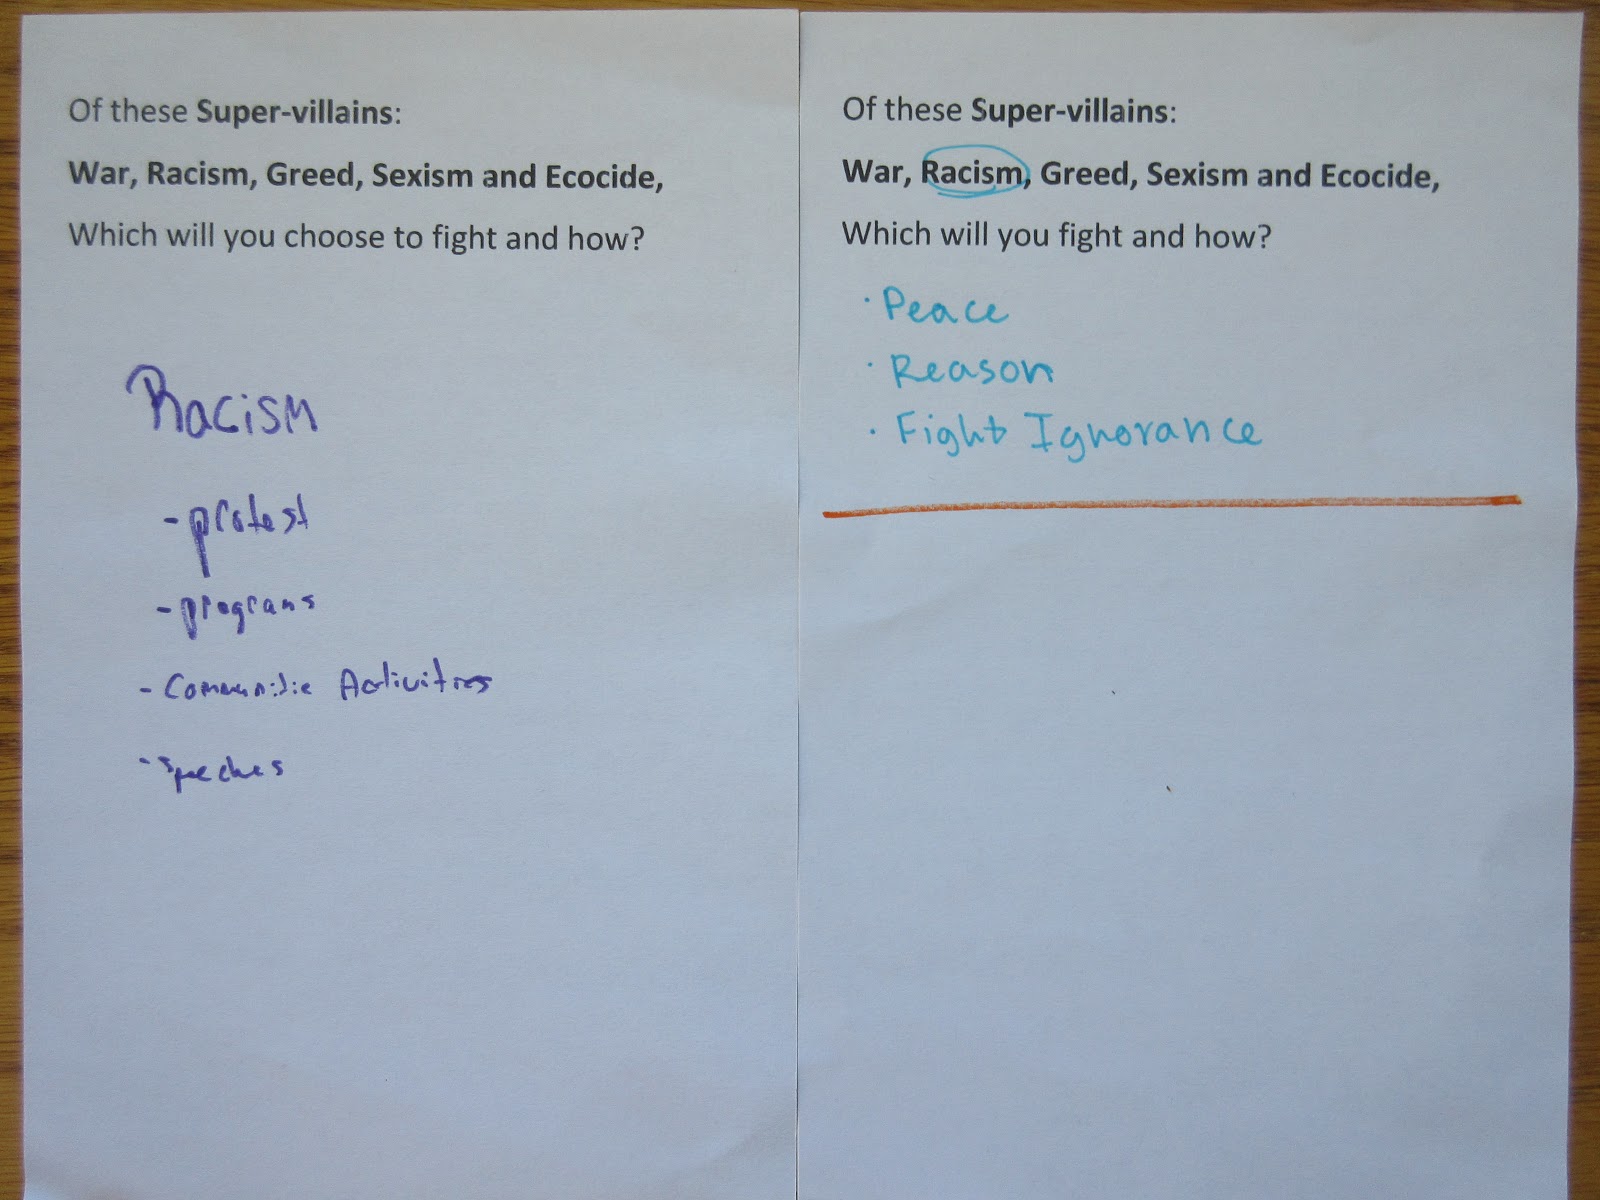 Of these Super-villains:
War, Racism, Greed, Sexism and Ecocide,
Which will you choose to fight and how?
Racism
- protest
- programs
- Communitie Activities
- Speches
Of these Super-villains:
War, Racism, Greed, Sexism and Ecocide,
Which will you fight and how?
· Peace
· Reason
· Fight Ignorance